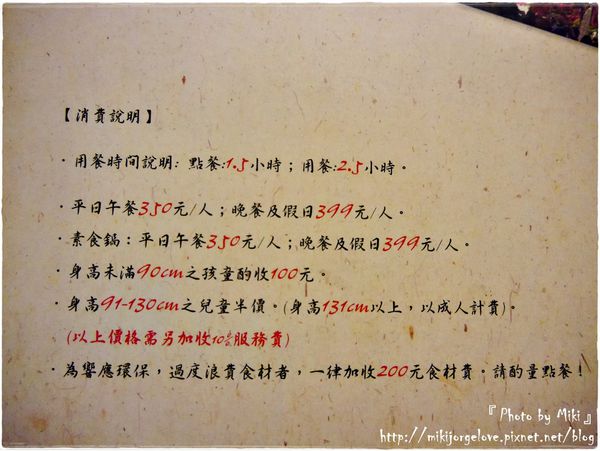 【消費說明】
·用餐時間說明: 點餐:1.5小時；用餐:2.5小時。
·平日午餐350元/人；晚餐及假日399元/人。
·素食鍋：平日午餐350元/人；晚餐及假日399元/人。
·身高未滿90cm之孩童酌收100元。
·身高91-130cm之兒童半價。(身高131cm以上，以成人計費)。
(以上價格需另加收10%服務費)
·為響應環保，過度浪費食材者，一律加收200元食材費。請酌量點餐！
『Photo by Miki』
http://mikijorgelove.pixnet.net/blog